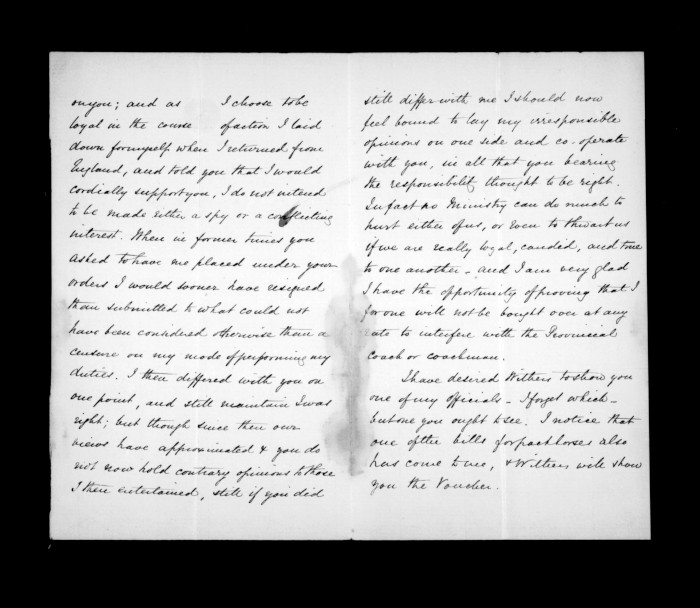 on you; and as I choose to be
loyal in the course of action I laid
down for myself when I returned from
England, and told you that I would
cordially support you, I do not intend
to be made either a spy or a conflicting
interest. When in former times you
asked to have me placed under your
orders I would sooner have resigned
than submitted to what could not
have been considered otherwise than a
censure on my mode of performing my
duties. I then differed with you on
one point, and still maintain I was
right; but though since then our
views have approximated & you do
not now hold contrary opinions to those
I then entertained, still if you did
still differ with me I should now
feel bound to lay my irresponsible
opinions on one side and co-operate
with you, in all that you bearing
the responsibility thought to be right.
In fact no Ministry can do much to
hurt either of us, or even to thwart us
if we are really loyal, candid, and true
to one another - and I am very glad
I have the opportunity of proving that I
for one will not be bought over at any
rate to interfere with the Provincial
Coach or coachman.
I have desired Withers to show you
one of my officials - I forget which -
but one you ought to see. I notice that
one of the bills for packhorses also
has come to me, & Withers will show
you the Voucher.